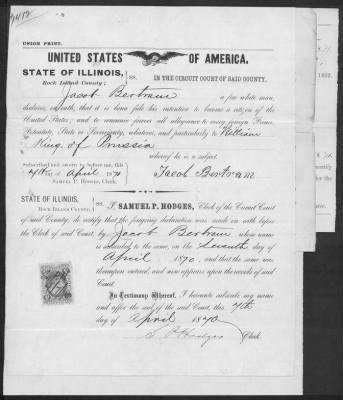 UNION PRINT.
UNITED STATES OF AMERICA.
STATE OF ILLINOIS,
Rock Island County; } SS. IN THE CIRCUIT COURT OF SAID COUNTY.
Jacob Bertram a free white man,
declares, on oath, that it is bona fide his intention to become a citizen of the
United States; and to renounce forever all allegiance to every foreign Prince,
Potentate, State or Sovereignty, whatever, and particularly to William
King of Prussia
whereof he is a subject
Subscribed and sworn to before me, this
7th day of April 1870
SAMUEL P. HODGES, Clerk.
Jacob Bertram
STATE OF ILLINOIS,
ROCK ISLAND COUNTY; } SS. I, SAMUEL P. HODGES, Clerk of the Circuit Court
of said County, do certify that the foregoing declaration was made on oath before
the Clerk of said Court, by Jacob Bertram whose name
is subscribed to the same, on the Seventh day of
April 1870, and that the same was
thereupon entered, and now appears upon the records of said
Court.
In Testimony Whereof, I hereunto subscribe my name
and affix the seal of the said Court, this 7th
day of April 1870
S. P. Hodges Clerk.